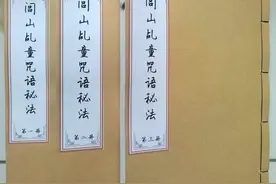 闾山乩童咒语秘法
第一册
闾山乩童咒语秘法
第二册
闾山乩童咒语秘法
第三册